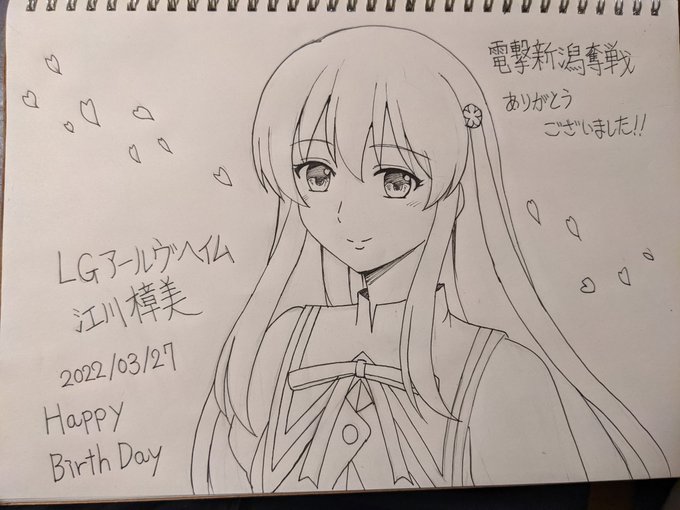 電撃新潟奪戦
ありがとう
ございました!!
LGアールヴヘイム
江川樟美
2022/03/27
Happy
Birth Day